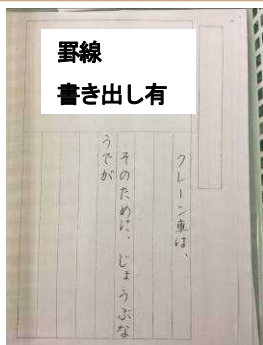 罫線
書き出し有
クレーン車は、
そのために、じょうぶな
うでが